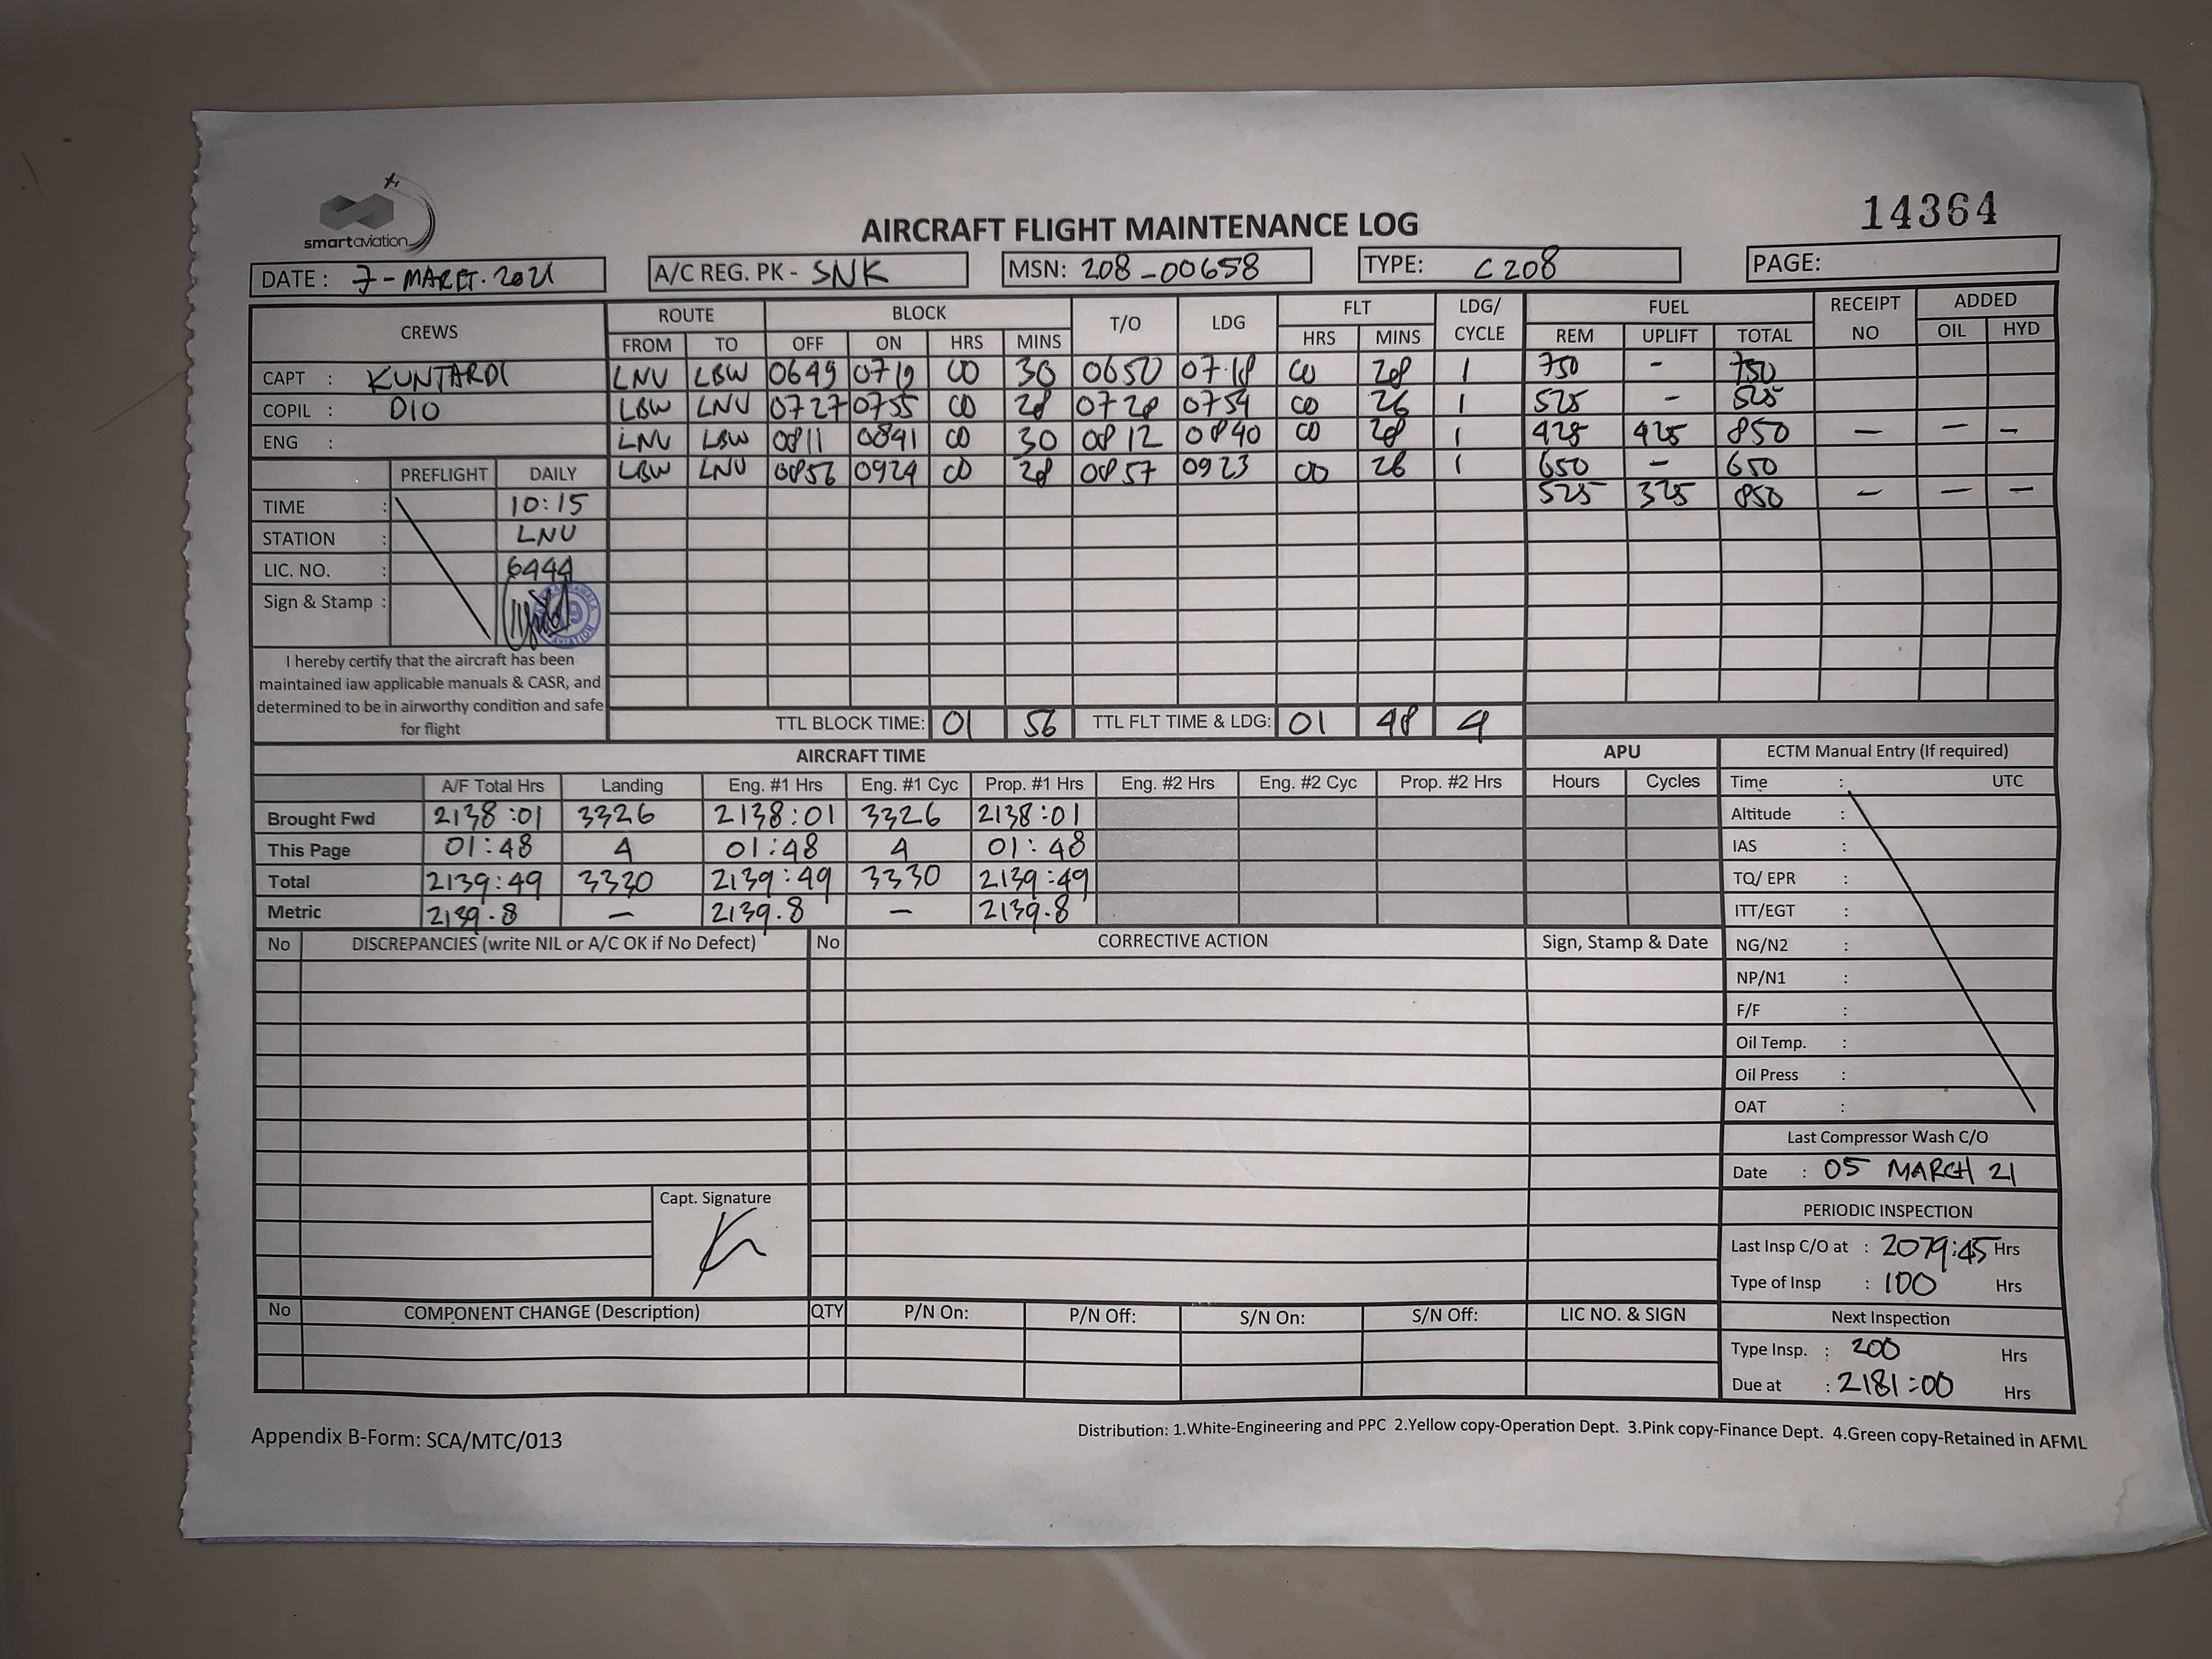 smartaviation
14364
AIRCRAFT FLIGHT MAINTENANCE LOG
DATE : 7 - MARET. 2021 A/C REG. PK - SNK MSN: 208-00658 TYPE: C208 PAGE:
CREWS ROUTE BLOCK T/O LDG FLT LDG/ CYCLE FUEL RECEIPT NO ADDED
FROM TO OFF ON HRS MINS HRS MINS REM UPLIFT TOTAL OIL HYD
CAPT : KUNTARDI LNU LBW 0649 0719 00 30 0650 0718 00 28 1 750 - 750
COPIL : DIO LBW LNU 0727 0755 00 28 0728 0754 00 26 1 525 - 525
ENG : LNU LBW 0811 0841 00 30 0812 0840 00 28 1 425 425 850 - - -
PREFLIGHT DAILY LBW LNU 0856 0924 00 28 0857 0923 00 26 1 650 - 650
TIME : 10:15 525 325 850 - - -
STATION : LNU
LIC. NO. : 6444
Sign & Stamp :
I hereby certify that the aircraft has been
maintained iaw applicable manuals & CASR, and
determined to be in airworthy condition and safe
for flight
TTL BLOCK TIME: 01 56 TTL FLT TIME & LDG: 01 48 4
AIRCRAFT TIME APU ECTM Manual Entry (If required)
A/F Total Hrs Landing Eng. #1 Hrs Eng. #1 Cyc Prop. #1 Hrs Eng. #2 Hrs Eng. #2 Cyc Prop. #2 Hrs Hours Cycles Time : UTC
Brought Fwd 2138:01 3326 2138:01 3326 2138:01 Altitude :
This Page 01:48 4 01:48 4 01:48 IAS :
Total 2139:49 3330 2139:49 3330 2139:49 TQ/ EPR :
Metric 2139.8 - 2139.8 - 2139.8 ITT/EGT :
No DISCREPANCIES (write NIL or A/C OK if No Defect) No CORRECTIVE ACTION Sign, Stamp & Date NG/N2 :
NP/N1 :
F/F :
Oil Temp. :
Oil Press :
OAT :
Last Compressor Wash C/O
Date : 05 MARCH 21
Capt. Signature
PERIODIC INSPECTION
Last Insp C/O at : 2079:45 Hrs
Type of Insp : 100 Hrs
No COMPONENT CHANGE (Description) QTY P/N On: P/N Off: S/N On: S/N Off: LIC NO. & SIGN Next Inspection
Type Insp. : 200 Hrs
Due at : 2181:00 Hrs
Appendix B-Form: SCA/MTC/013
Distribution: 1.White-Engineering and PPC 2.Yellow copy-Operation Dept. 3.Pink copy-Finance Dept. 4.Green copy-Retained in AFML